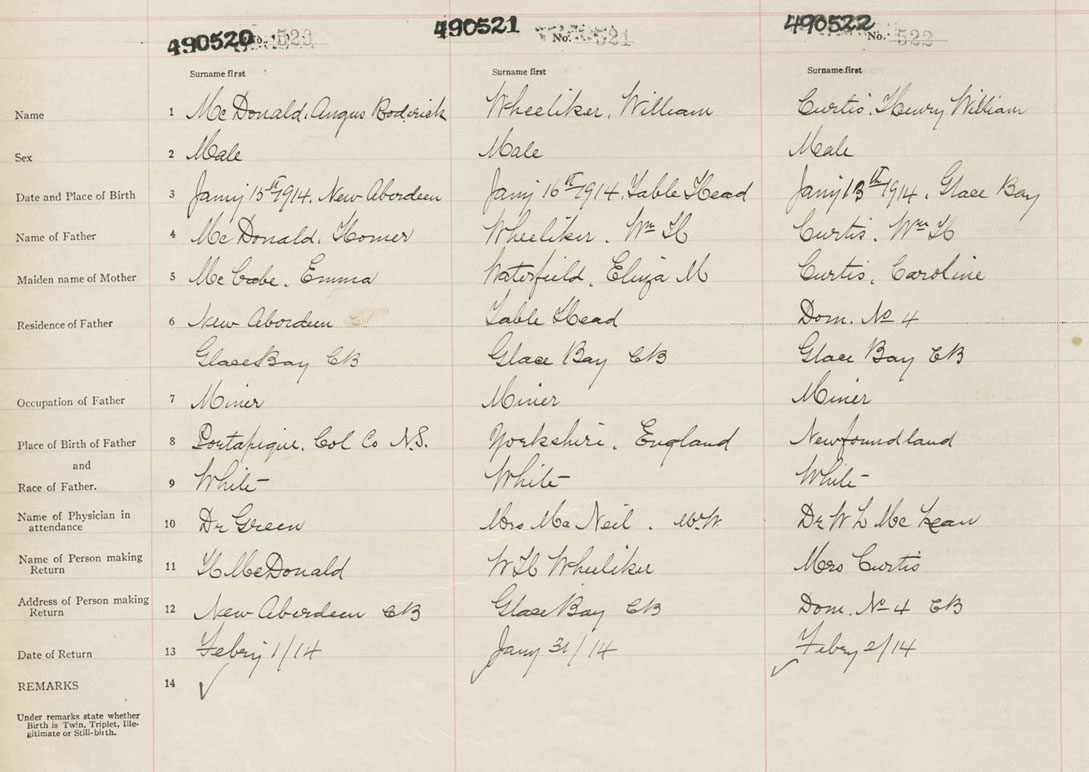 490520 No. 520 490521 No. 521 490522 No. 522
Surname first Surname first Surname first
Name 1 McDonald, Angus Roderick Wheeliker, William Curtis, Henry William
Sex 2 Male Male Male
Date and Place of Birth 3 Jany 15th 1914. New Aberdeen Jany 16th 1914. Table Head Jany 13th 1914. Glace Bay
Name of Father 4 McDonald, Homer Wheeliker. Wm H Curtis. Wm H
Maiden name of Mother 5 McCabe. Emma Waterfield, Eliza M Curtis, Caroline
Residence of Father 6 New Aberdeen Table Head Dom. No 4
Glace Bay CB Glace Bay CB Glace Bay CB
Occupation of Father 7 Miner Miner Miner
Place of Birth of Father 8 Portapique. Col Co N.S. Yorkshire. England Newfoundland
and
Race of Father. 9 White White White
Name of Physician in attendance 10 Dr Green Mrs MacNeil. MW Dr W L McKean
Name of Person making Return 11 H McDonald W H Wheeliker Mrs Curtis
Address of Person making Return 12 New Aberdeen CB Glace Bay CB Dom. No 4 CB
Date of Return 13 Febry 1/14 Jany 31/14 Febry 2/14
REMARKS 14
Under remarks state whether
Birth is Twin, Triplet, Ille-
gitimate or Still-birth.